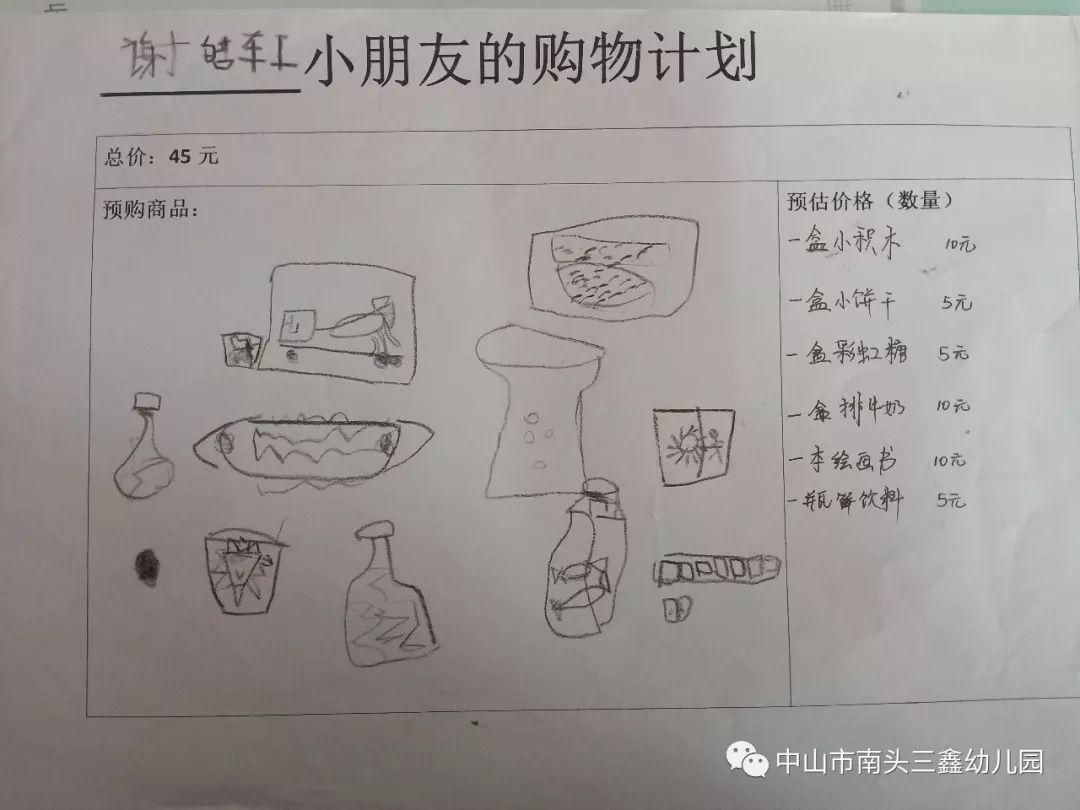 谢皓轩小朋友的购物计划
总价：45 元
预购商品：
预估价格（数量）
一盒小积木 10元
一盒小饼干 5元
一盒彩虹糖 5元
一盒排牛奶 10元
一本绘画书 10元
一瓶鲜饮料 5元
中山市南头三鑫幼儿园